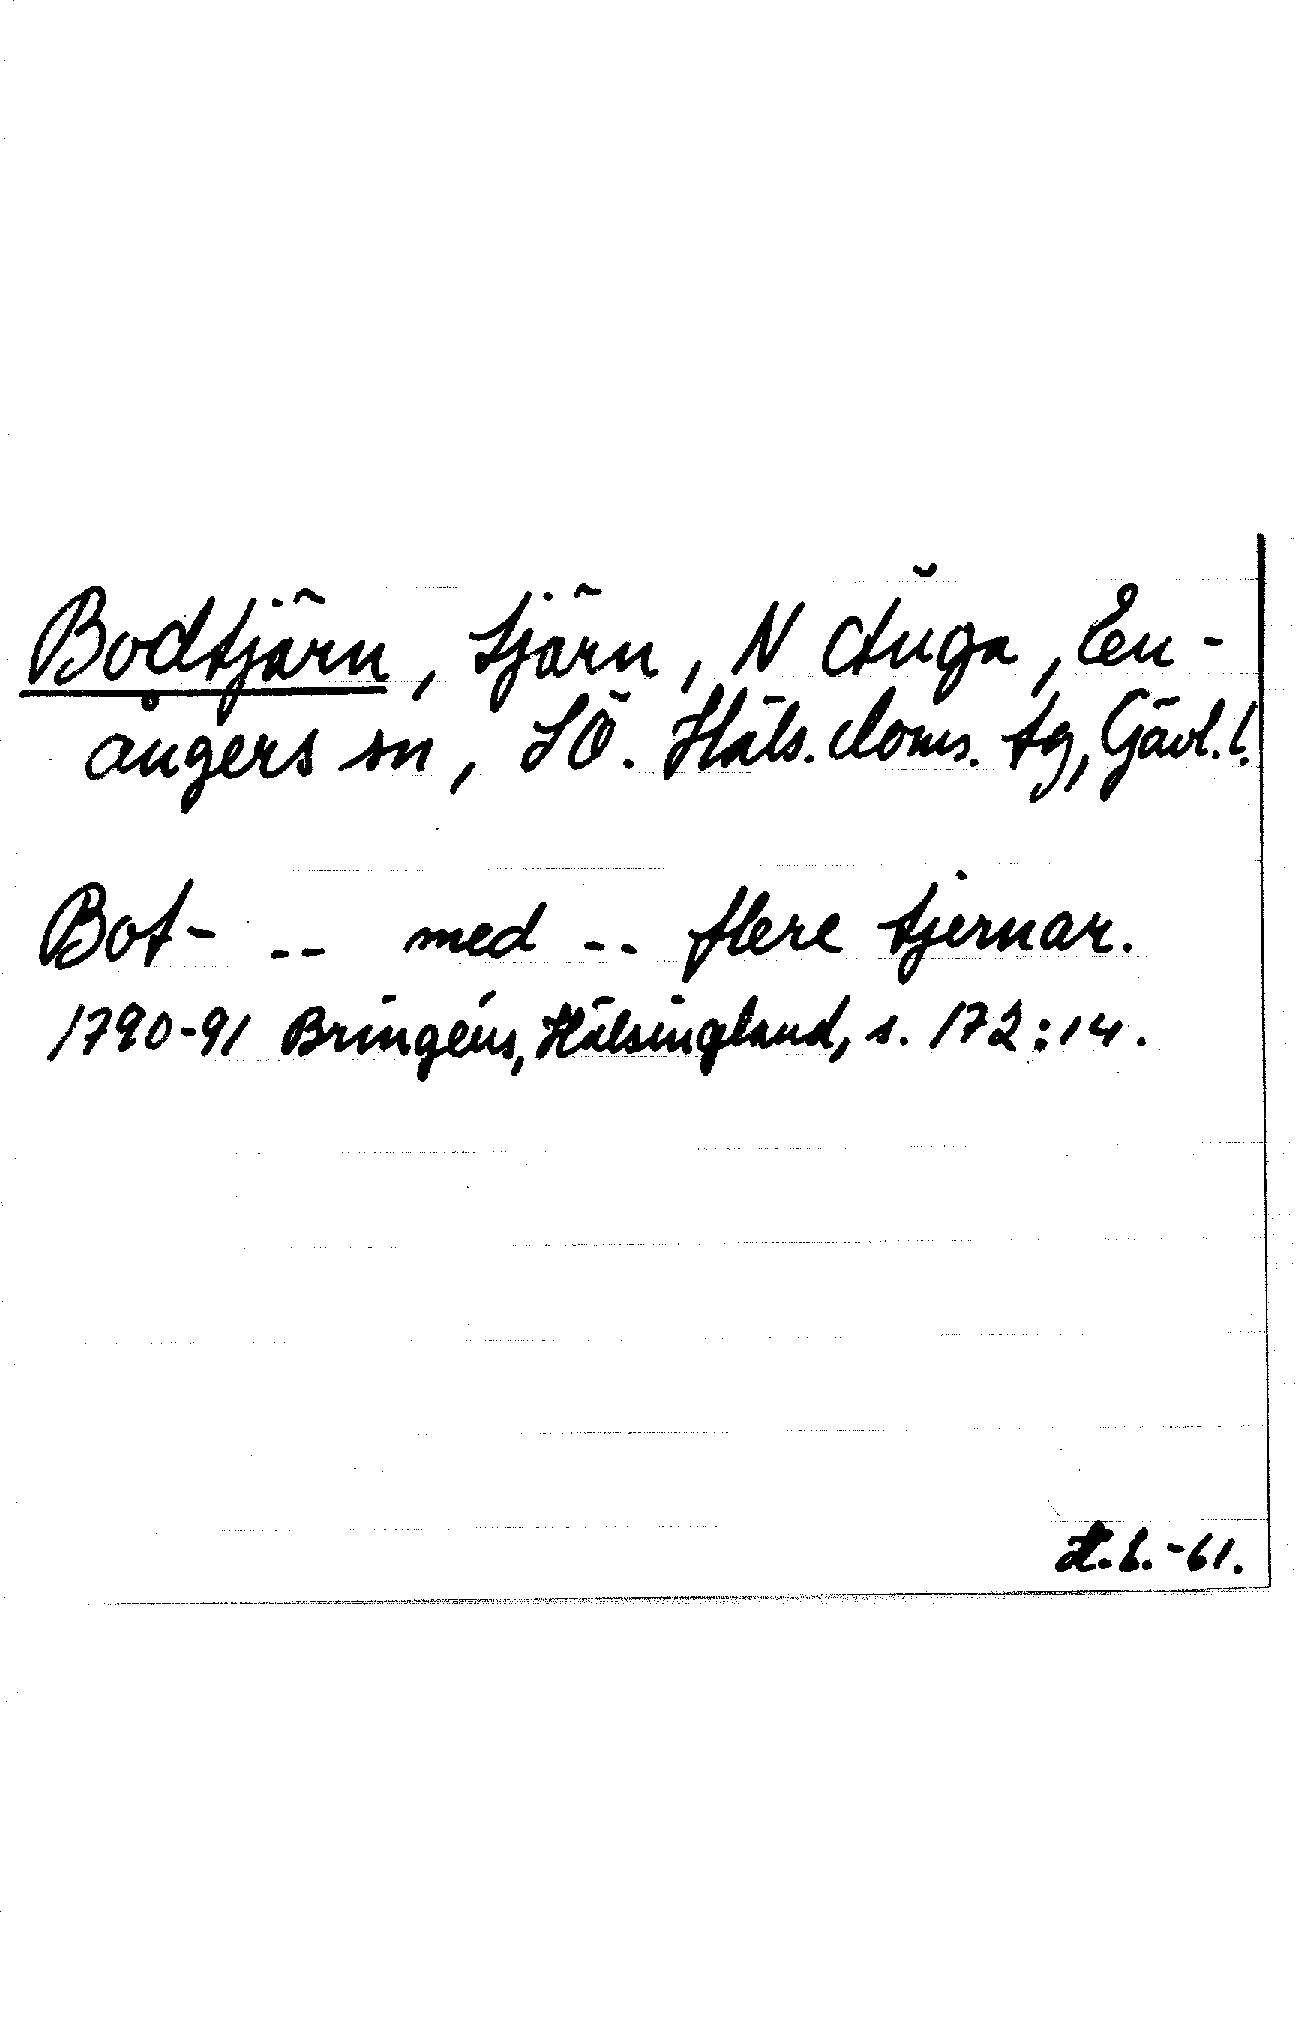 Bodtjärn, tjärn, N Änga, En-
ångers sn, SÖ. Häls. doms. tg, Gävl. l.
Bot- -- med -- flere tjernar.
1790-91 Bringéus, Hälsingland, s. 172:14.
-61.